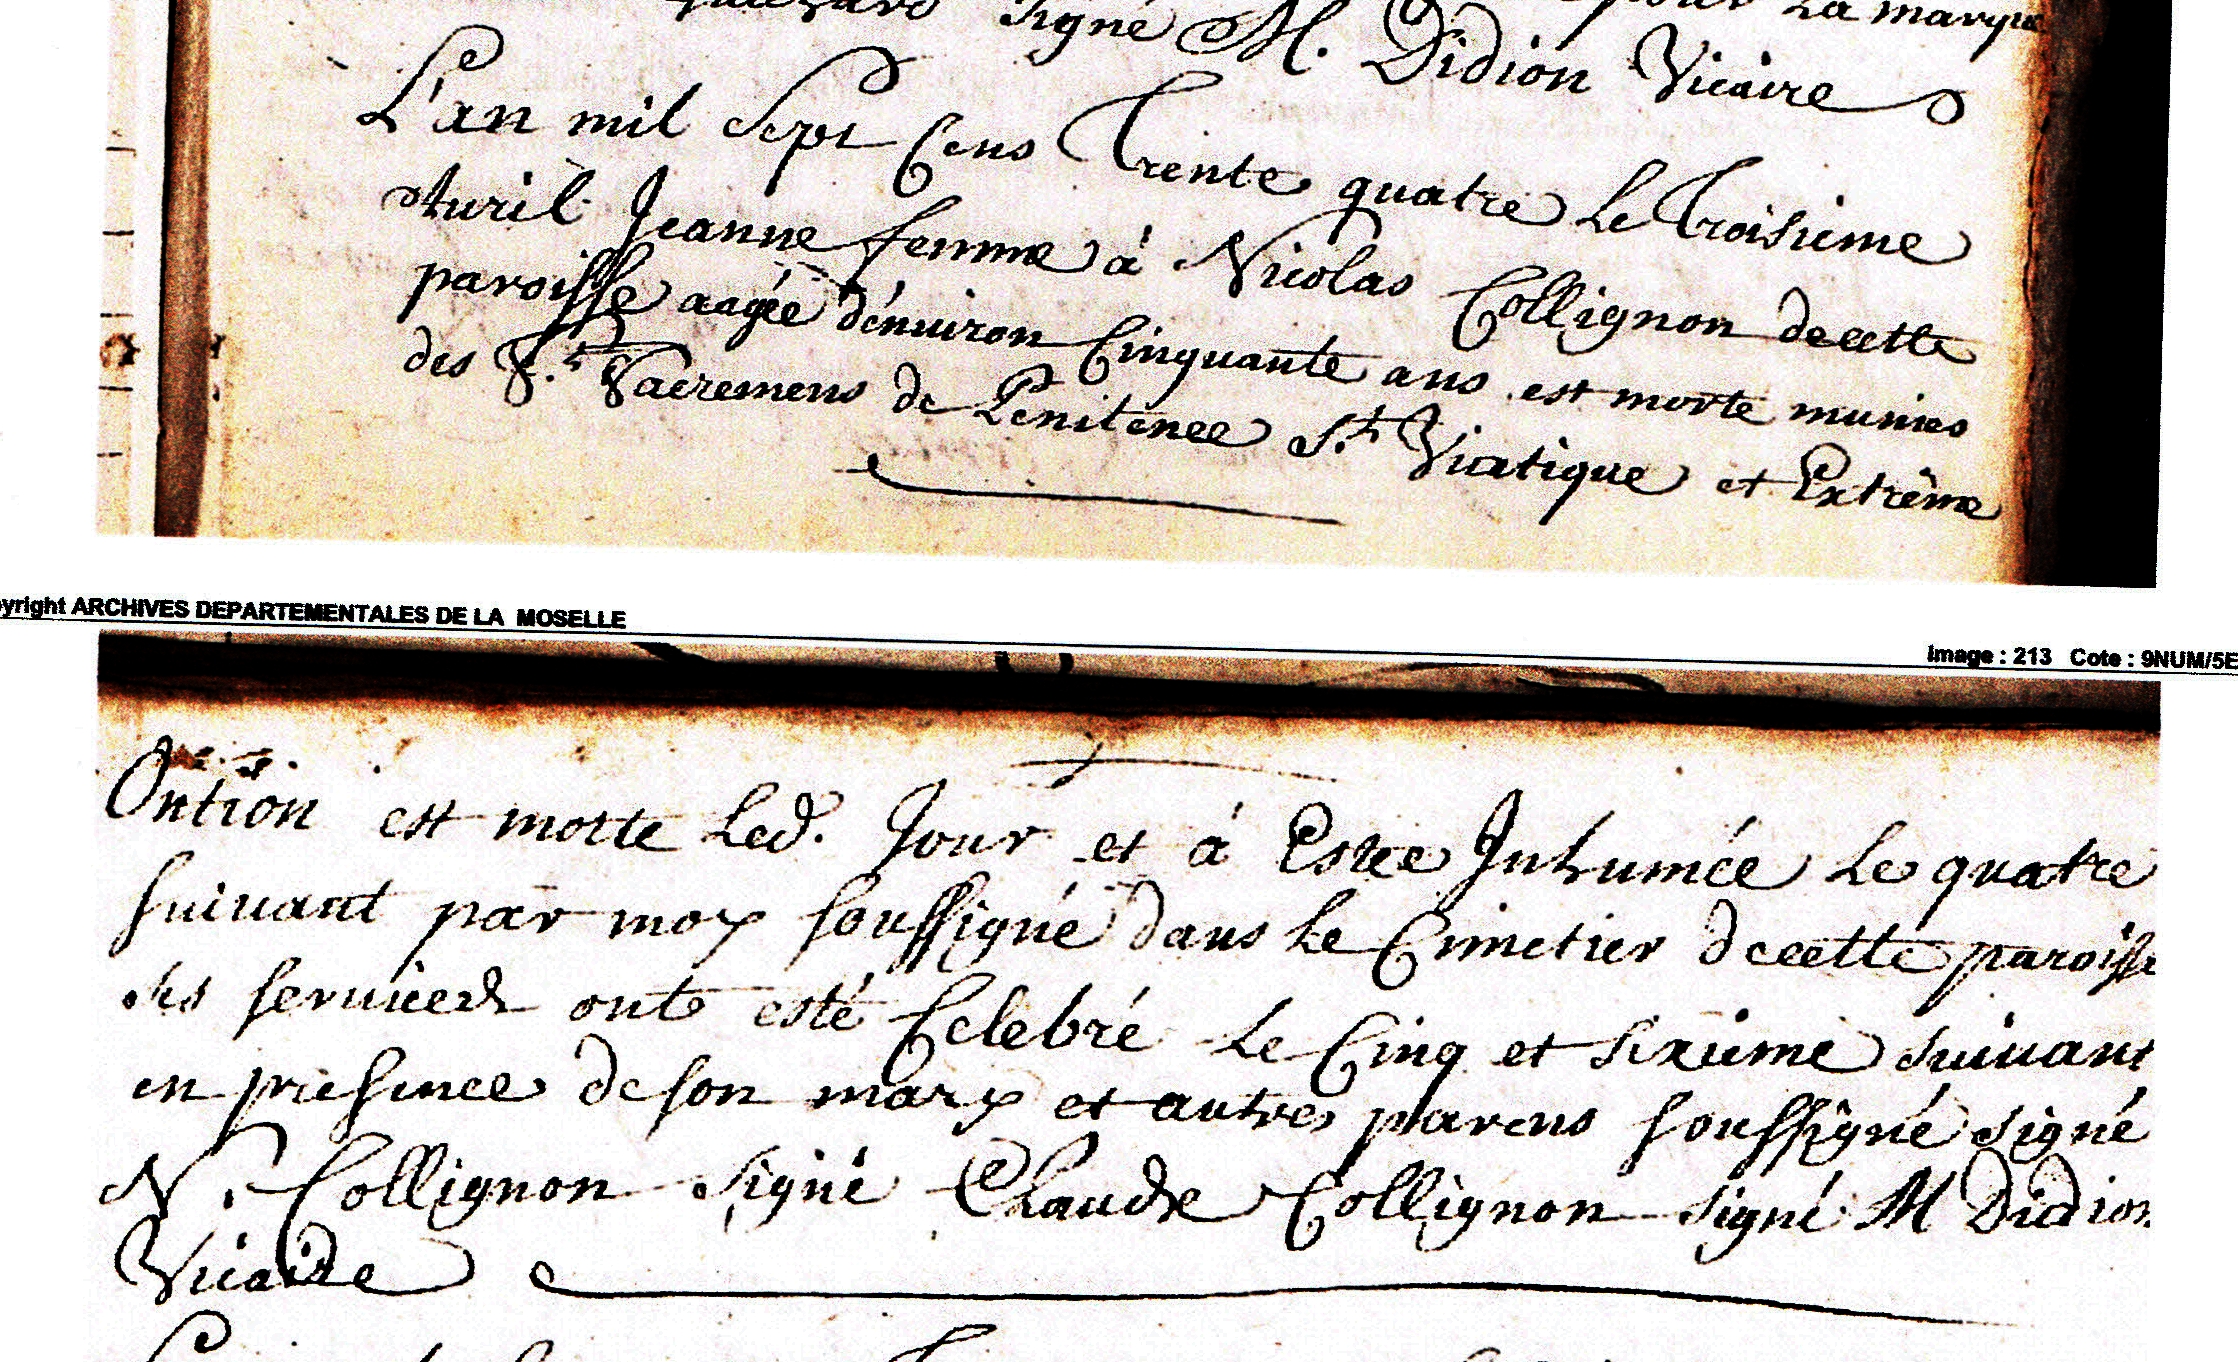 signé M. Didion Vicaire
pour La marque
L'an mil Sept Cens Trente quatre Le Troisieme
Auril Jeanne femme à Nicolas Collignon decette
paroisse aagée d'enuiron Cinquante ans est morte munies
des S.ts Sacremens de Penitence S.t Viatique et Extrême
yright ARCHIVES DEPARTEMENTALES DE LA MOSELLE
Image : 213 Cote : 9NUM/5E
Ontion est morte Led. Jour et à Estee Inhumée Le quatre
suiuant par moy soussigné dans Le Cimetier decette paroisse
ses seruices ont esté Celebré Le Cinq et sixieme suiuant
en presence de son mary et autres parens soussigné signé
N. Collignon signé Claude Collignon signé M Didion
Vicaire